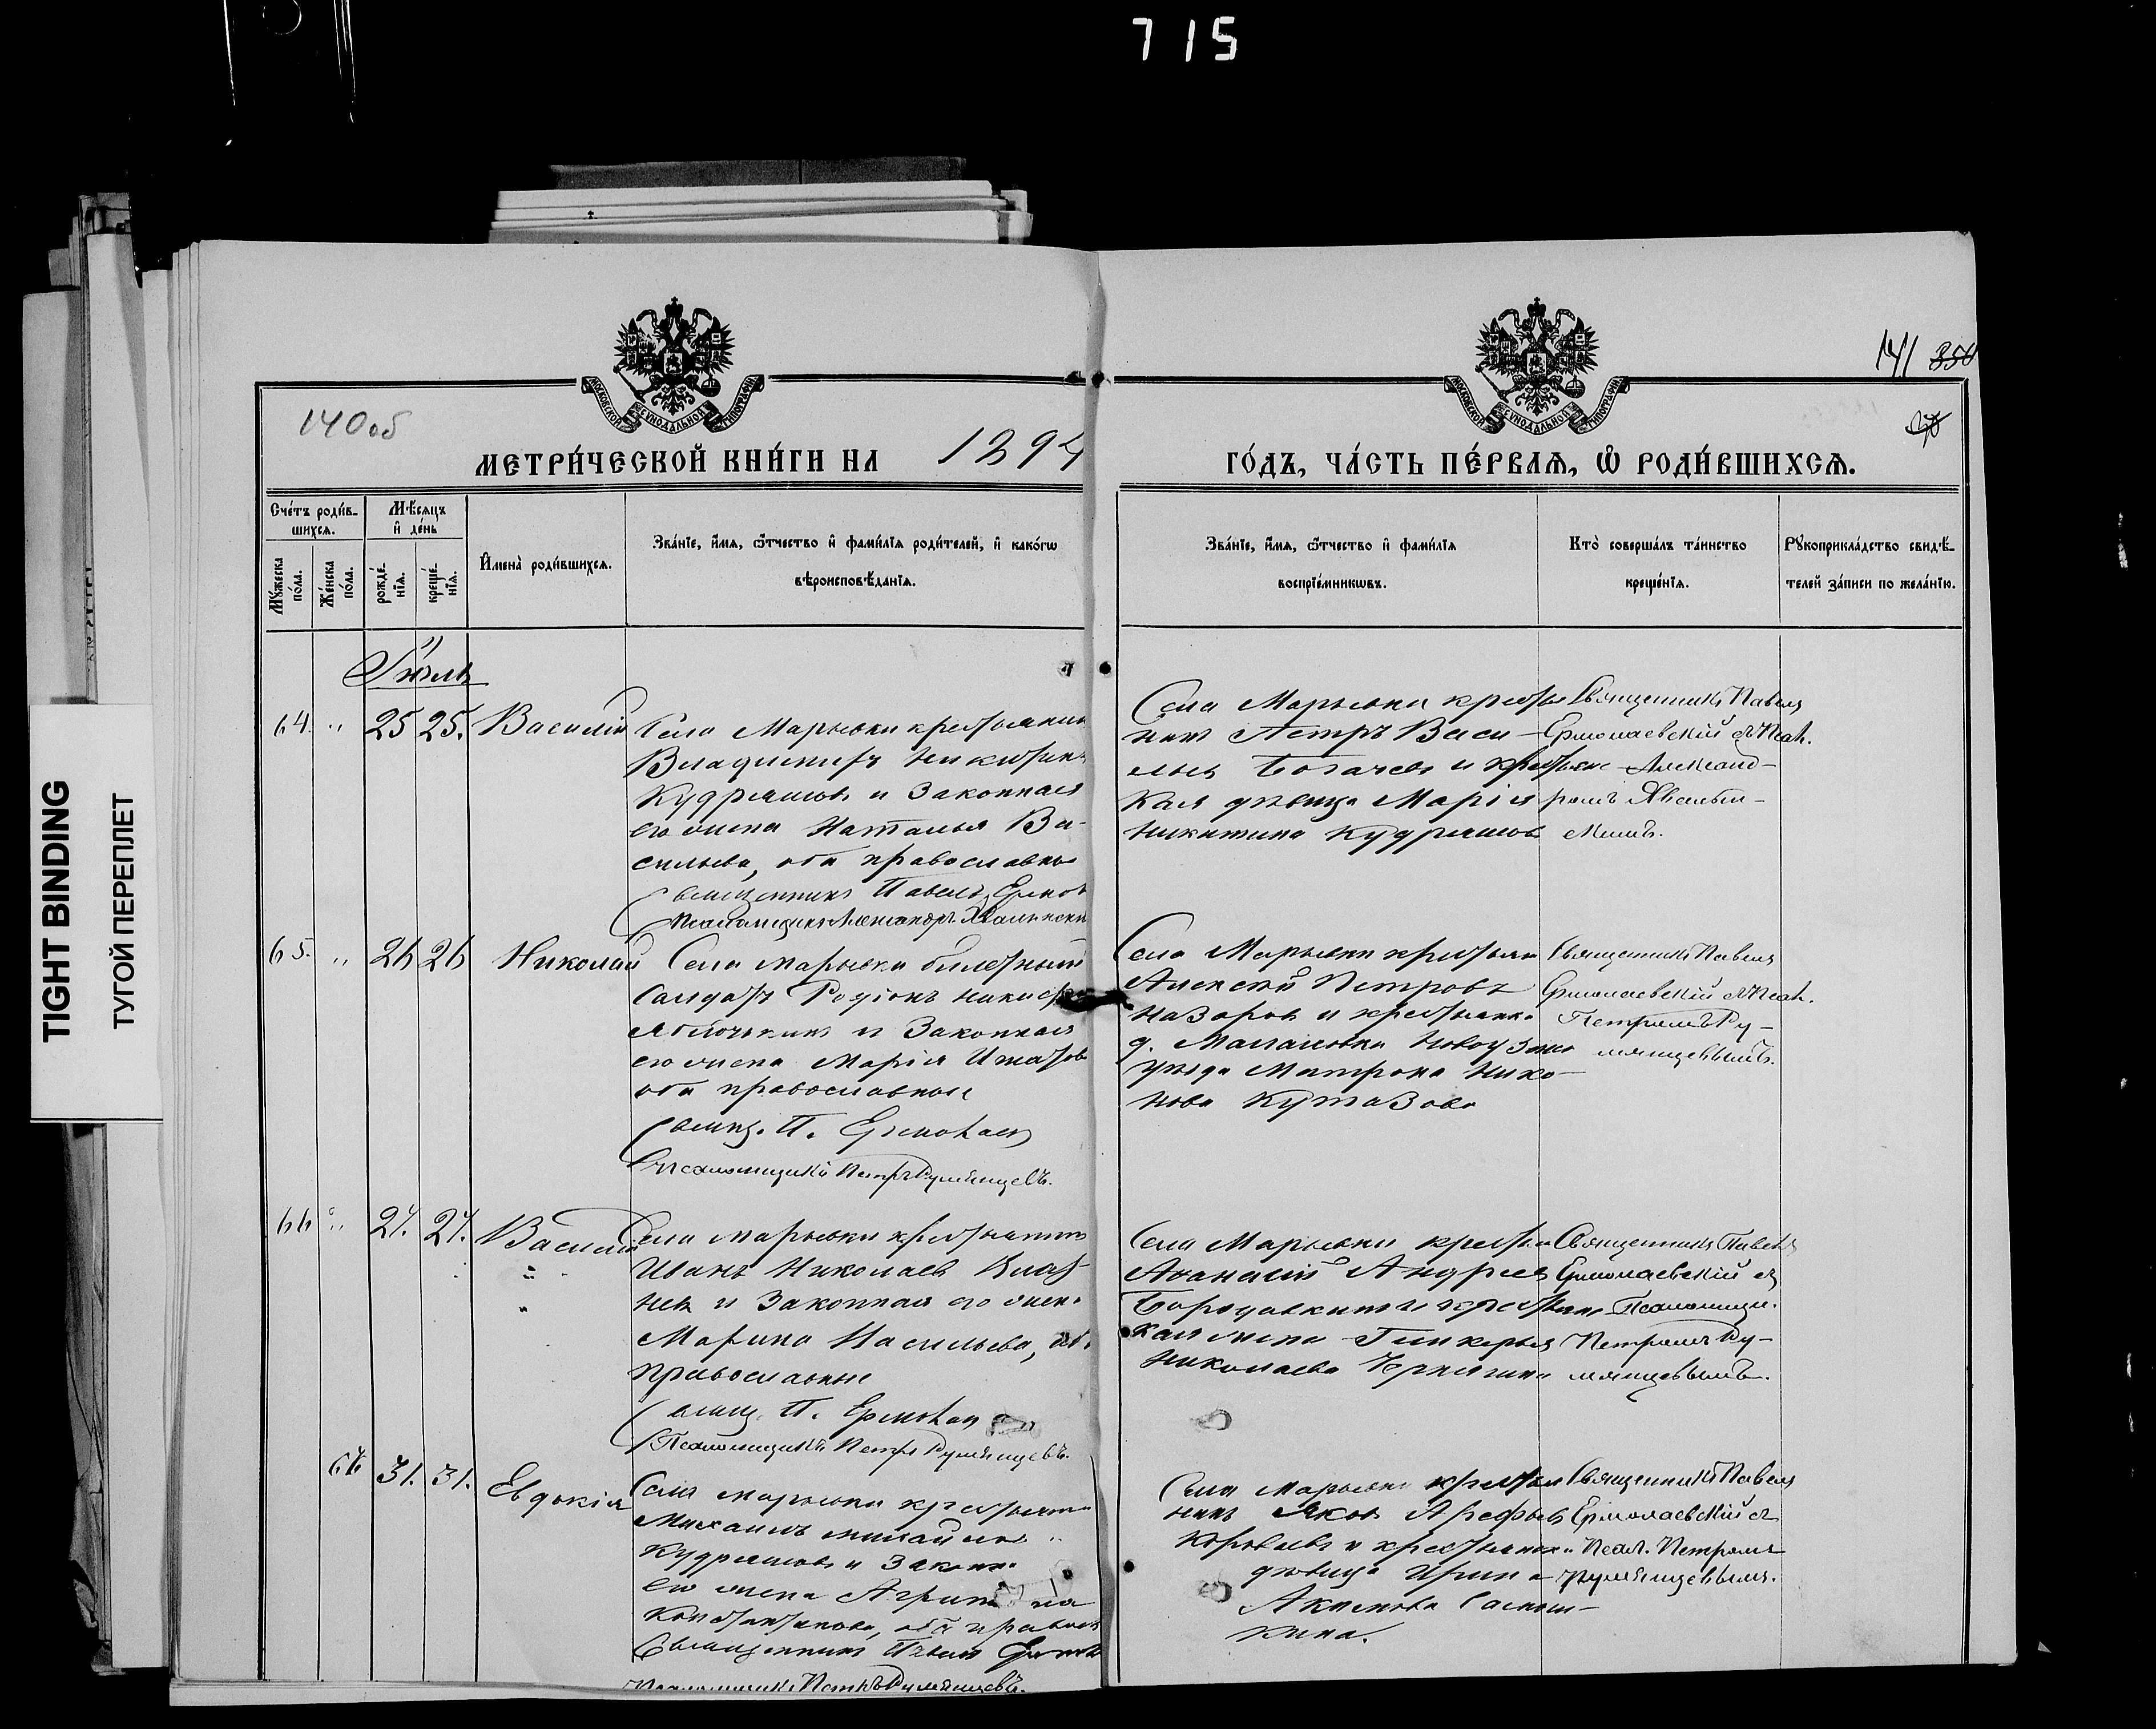 715
TIGHT BINDING
ТУГОЙ ПЕРЕПЛЕТ
140об
141 350
МОСКОВСКОЙ СѴНОДАЛЬНОЙ ТИПОГРАФІИ
МОСКОВСКОЙ СѴНОДАЛЬНОЙ ТИПОГРАФІИ
МЕТРИ́ЧЕСКОЙ КНИ́ГИ НА 1894
ГО́ДЪ, ЧА́СТЬ ПЕ́РВАѦ, Ѡ҆ РОДИ́ВШИХСѦ.
Сче́тъ роди́в-
шихсѧ.
Мꙋ́жеска по́ла.
Же́нска по́ла.
Мѣ́сѧцъ
и҆ де́нь
рожде́-
нїѧ.
креще́-
нїѧ.
И҆мена̀ роди́вшихсѧ.
Зва́нїе, и҆́мѧ, ѻ҆́тчество и҆ фами́лїѧ роди́телей, и҆ како́гѡ
вѣроисповѣ́данїѧ.
Зва́нїе, и҆́мѧ, ѻ҆́тчество и҆ фами́лїѧ
воспрїе́мникѡвъ.
Кто̀ соверша́лъ та́инство
креще́нїѧ.
Рꙋкоприкла́дство свидѣ́-
телей за́писи по жела́нїю.
Іюль
64. " 25 25. Василій
Села Марьевки крестьянинъ
Владиміръ Никитинъ
Кудряшовъ и законная
его жена Наталья Ва-
сильева, оба православные
Священникъ Павелъ Ермол
Псаломщикъ Александръ
Села Марьевки кресть
нинъ Петръ Васи-
льевъ Богачевъ и крестьянс
кая дѣвица Марія
Никитина Кудряшов
Священникъ Павелъ
Ермолаевскій съ Псал.
Александ-
ромъ
65. " 26 26 Николай
Села Марьевки билетный
Солдатъ Родіонъ Никиф
и законная
его жена Марія
оба православные
Свящ. П. Ермолаев
Псаломщикъ Петръ Румянцевъ.
Села Марьевки крестьян
Алексей Петровъ
Назаровъ и крестьянка
д. Малаховки Новоузен
уѣзда Матрона Нико-
нова
Священникъ Павелъ
Ермолаевскій съ Псал.
Петромъ Ру-
мянцевымъ.
66 " 27. 27. Василій
Села Марьевки крестьянинъ
Иванъ Николаевъ
и законная его жена
Марина Васильева, об
православные
Свящ. П. Ермолаев
Псаломщикъ Петръ Румянцевъ.
Села Марьевки кресть
Аѳанасій Андреев
и крестьян
кая жена Гликерья
Николаева
Священникъ Павелъ
Ермолаевскій съ
Псаломщи.
Петромъ Ру-
мянцевымъ.
31. 31. Евдокія
Села Марьевки крестьянинъ
Михаилъ Михайлов
Кудряшовъ и законн
его жена Агрипина
Константинова, оба правосл
Священникъ Павелъ Ермол
Псаломщикъ Петръ Румянцевъ.
Села Марьевки кресть
нинъ Яковъ Арефьевъ
и крестьянск
дѣвица Ирина
Акимова
Священникъ Павелъ
Ермолаевскій съ
Псал. Петромъ
Румянцевымъ.